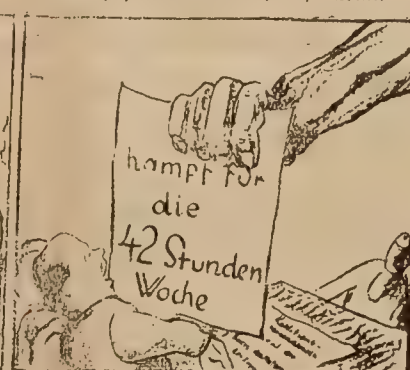 kämpft für
die
42 Stunden
Woche